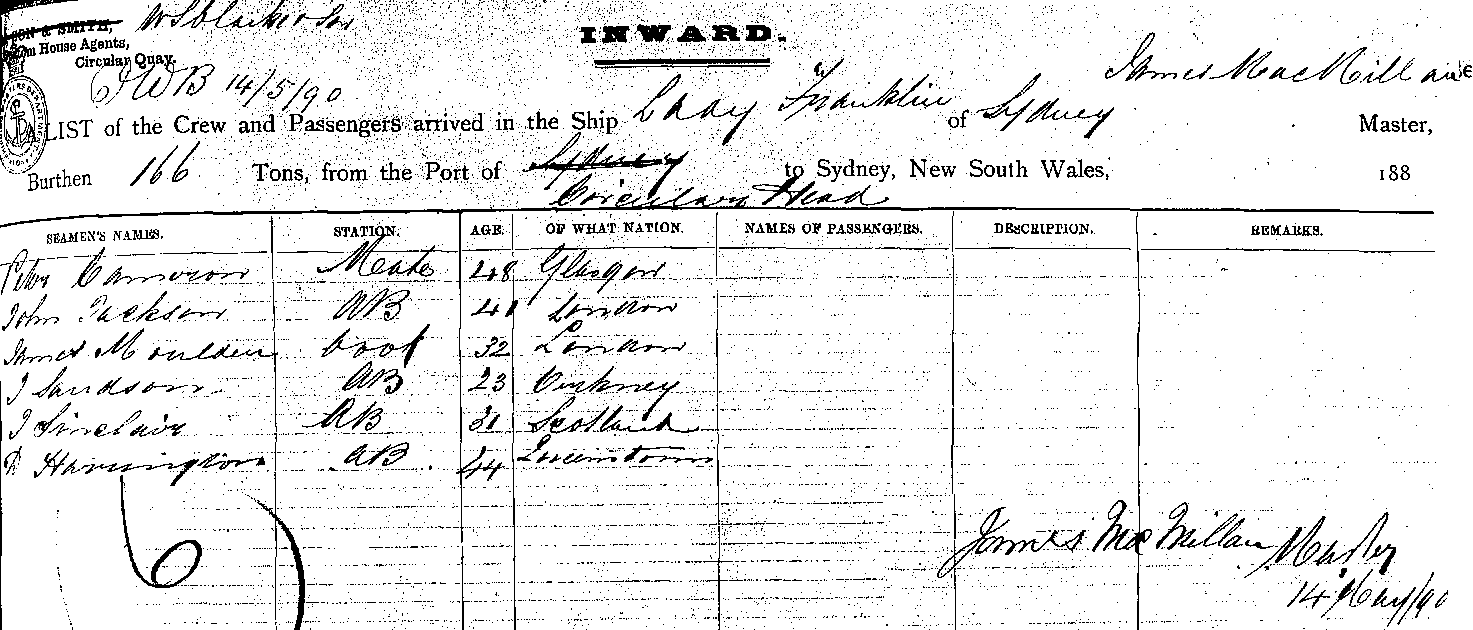 SON & SMITH, W S Blackwood
Custom House Agents,
Circular Quay.
INWARD.
JWB 14/5/90
James MacMillan
A LIST of the Crew and Passengers arrived in the Ship Lady Franklin of Sydney Master,
Burthen 166 Tons, from the Port of Sydney to Sydney, New South Wales, 188
Circular Head
SEAMEN'S NAMES. STATION. AGE. OF WHAT NATION. NAMES OF PASSENGERS. DESCRIPTION. REMARKS.
Peter Cameron Mate 48 Glasgow
John Jackson AB 41 London
James Moulden Cook 32 London
J Sandson AB 23 Orkney
J Sinclair AB 31 Scotland
D Harrington AB 44 Queenstown
6
James MacMillan Master
14 May/90